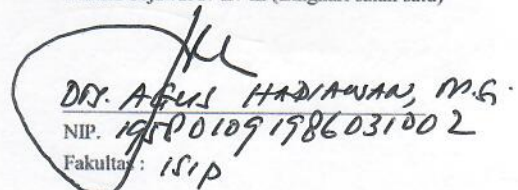 Drs. AGUS HADIAWAN, M.Si.
NIP. 195801091986031002
Fakultas : ISIP